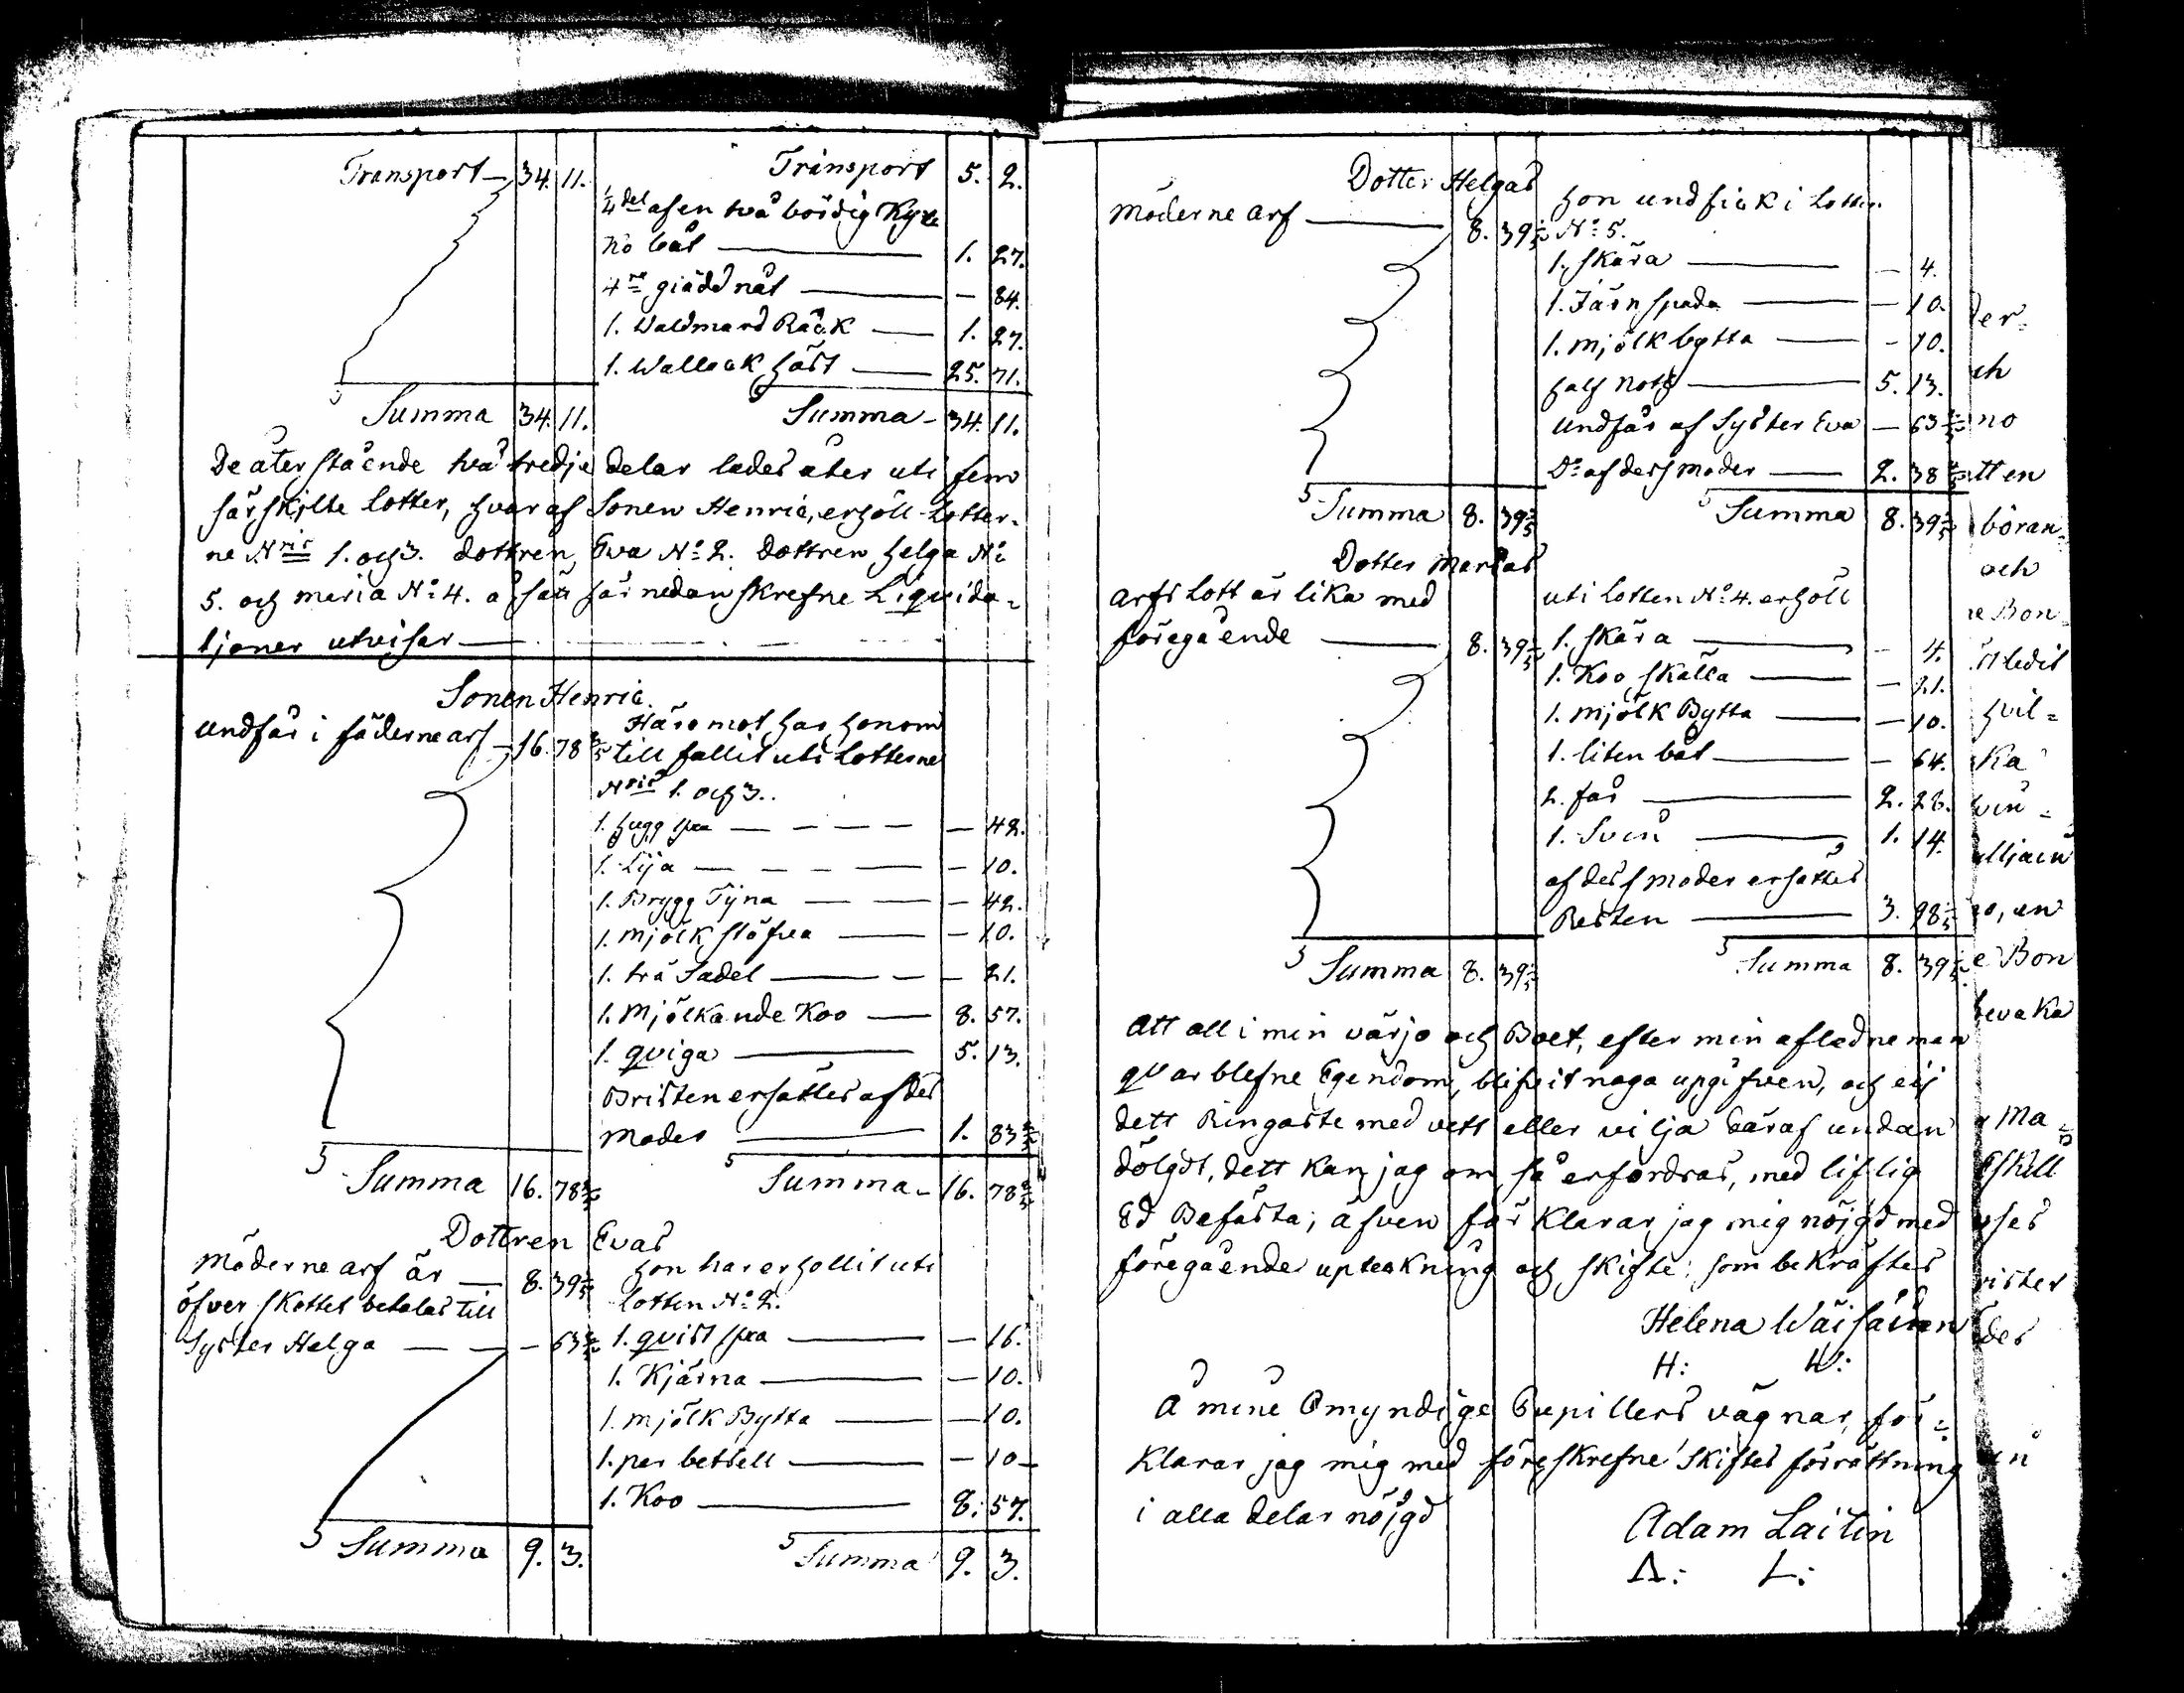 Transport 34. 11. Transport 5. 2.
1/4 del af en två bördig Kyr
ko båt 1. 27.
4 st giädd nät 84.
1. Waldmars Räck 1. 27.
1. Wallack häst 25. 71.
Summa 34. 11. Summa 34. 11.
De återstående två tredje delar lades åter uti fem
särskilte lotter, hvaraf Sonen Henric, erhöll Lotter-
ne N:ris 1. och 3. dottren, Eva N:o 2. dottren helga N:o
5. och meria N:o 4. å sätt här nedan skrefne Liqvida-
tjoner utvisar
Sonen Henric
Undfår i fäderne arf 16. 78 2/5
Häremot har honom
till fallit uti Lotterne
N:ris 1. och 3.
1. hugg yxa 42.
1. Lija 10.
1. Brygg Tyna 42.
1. mjölk stäfva 10.
1. trä Sadel 21.
1. Mjölkande Koo 8. 57.
1. qviga 5. 13.
Bristen ersättes af des
Moder 1. 83 2/5
Summa 16. 78 2/5 Summa 16. 78 2/5
Dottren Evas
Möderne arf är 8. 39 1/5
öfver skottet betalas till
Syster Helga 63 4/5
hon har erhollit uti
lotten N:o 2.
1. qvist yxa 16.
1. Kjärna 10.
1. mjölk Bytta 10.
1. par betsell 10
1. Koo 8. 57.
Summa 9. 3. Summa 9. 3.
Dotter Helgas
Möderne arf 8. 39 1/5
hon undfick i Lotten
N:o 5.
1. skära 4.
1. Järn spada 10.
1. mjölk bytta 10.
half noth 5. 13.
Undfår af Syster Eva 63 4/5
D:o af dess moder 2. 38 2/5
Summa 8. 39 1/5 Summa 8. 39 1/5
Dotter Marias
arfs Lott är lika med
föregående 8. 39 1/5
uti Lotten N:o 4. erhöll
1. skära 4.
1. Koo skälla 21.
1. Mjölk Bytta 10.
1. liten båt 64.
2. får 2. 28.
1. Svin 1. 14.
af dess moder ersättes
Resten 3. 98 1/5
Summa 8. 39 1/5 Summa 8. 39 1/5
Att all i min värjo och Boet, efter min afledne man
qvarblefne Egendom, blifvit noga upgifven, och eij
dett Ringaste med vett eller vilja däraf undan
dölgdt, dett kan jag om så erfordras, med liflig
Ed Befästa; äfven förklarar jag mig nöjgd med
föregående upteckning och skifte: som bekräftes
Helena Wäisäinen
H: W:
Å mine Omyndige Pupillers vägnar, för-
Klarar jag mig med föreskrefne Skiftes förrättning
i alla delar nöjgd
Adam Laitin
A: L: